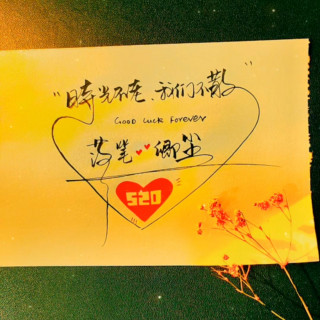 "時光不老,我们不散"
GOOD LUCK Forever
落笔 卿尘
520